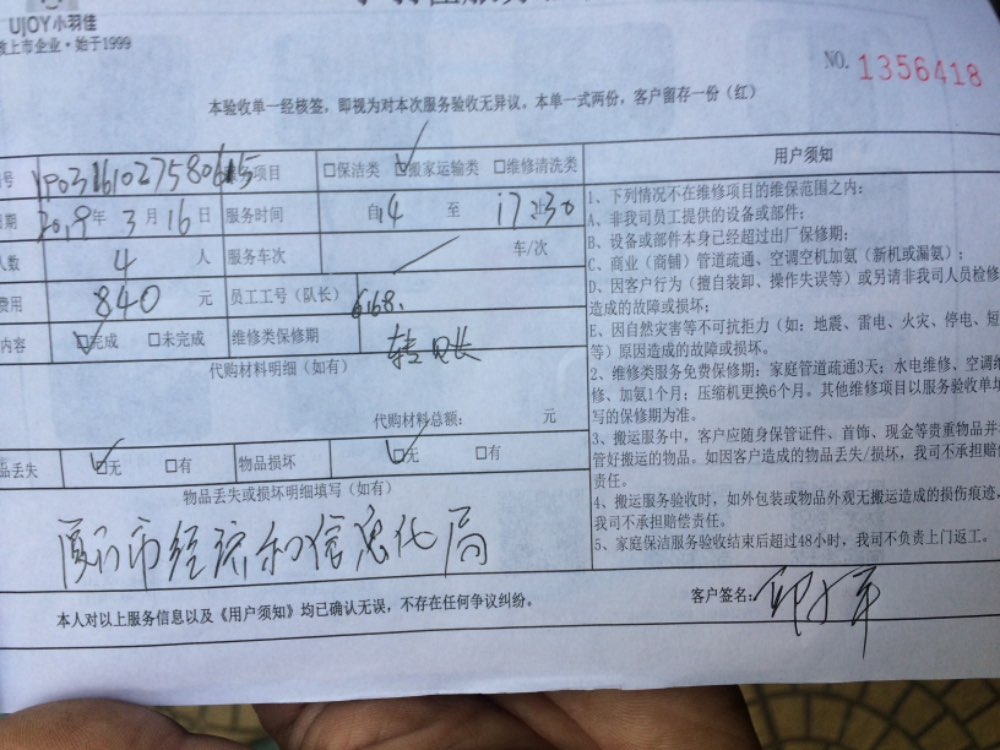 UJOY小羽佳
上市企业·始于1999
NO. 1356418
本验收单一经核签，即视为对本次服务验收无异议。本单一式两份，客户留存一份（红）
号 项目 □保洁类 ☑搬家运输类 □维修清洗类 用户须知
期 2019年3月16日 服务时间 自14至17:30
人数 4人 服务车次 / 车/次
费用 840元 员工工号（队长） 6168.
内容 ☑完成 □未完成 维修类保修期
代购材料明细（如有）
代购材料总额： 元
品丢失 ☑无 □有 物品损坏 ☑无 □有
物品丢失或损坏明细填写（如有）
厦门市经济和信息化局
1、下列情况不在维修项目的维保范围之内：
A、非我司员工提供的设备或部件；
B、设备或部件本身已经超过出厂保修期；
C、商业（商铺）管道疏通、空调空机加氨（新机或漏氨）；
D、因客户行为（擅自装卸、操作失误等）或另请非我司人员检修
造成的故障或损坏；
E、因自然灾害等不可抗拒力（如：地震、雷电、火灾、停电、短
等）原因造成的故障或损坏。
2、维修类服务免费保修期：家庭管道疏通3天；水电维修、空调维
修、加氨1个月；压缩机更换6个月。其他维修项目以服务验收单填
写的保修期为准。
3、搬运服务中，客户应随身保管证件、首饰、现金等贵重物品并
管好搬运的物品。如因客户造成的物品丢失/损坏，我司不承担赔偿
责任。
4、搬运服务验收时，如外包装或物品外观无搬运造成的损伤痕迹，
我司不承担赔偿责任。
5、家庭保洁服务验收结束后超过48小时，我司不负责上门返工。
本人对以上服务信息以及《用户须知》均已确认无误，不存在任何争议纠纷。 客户签名：